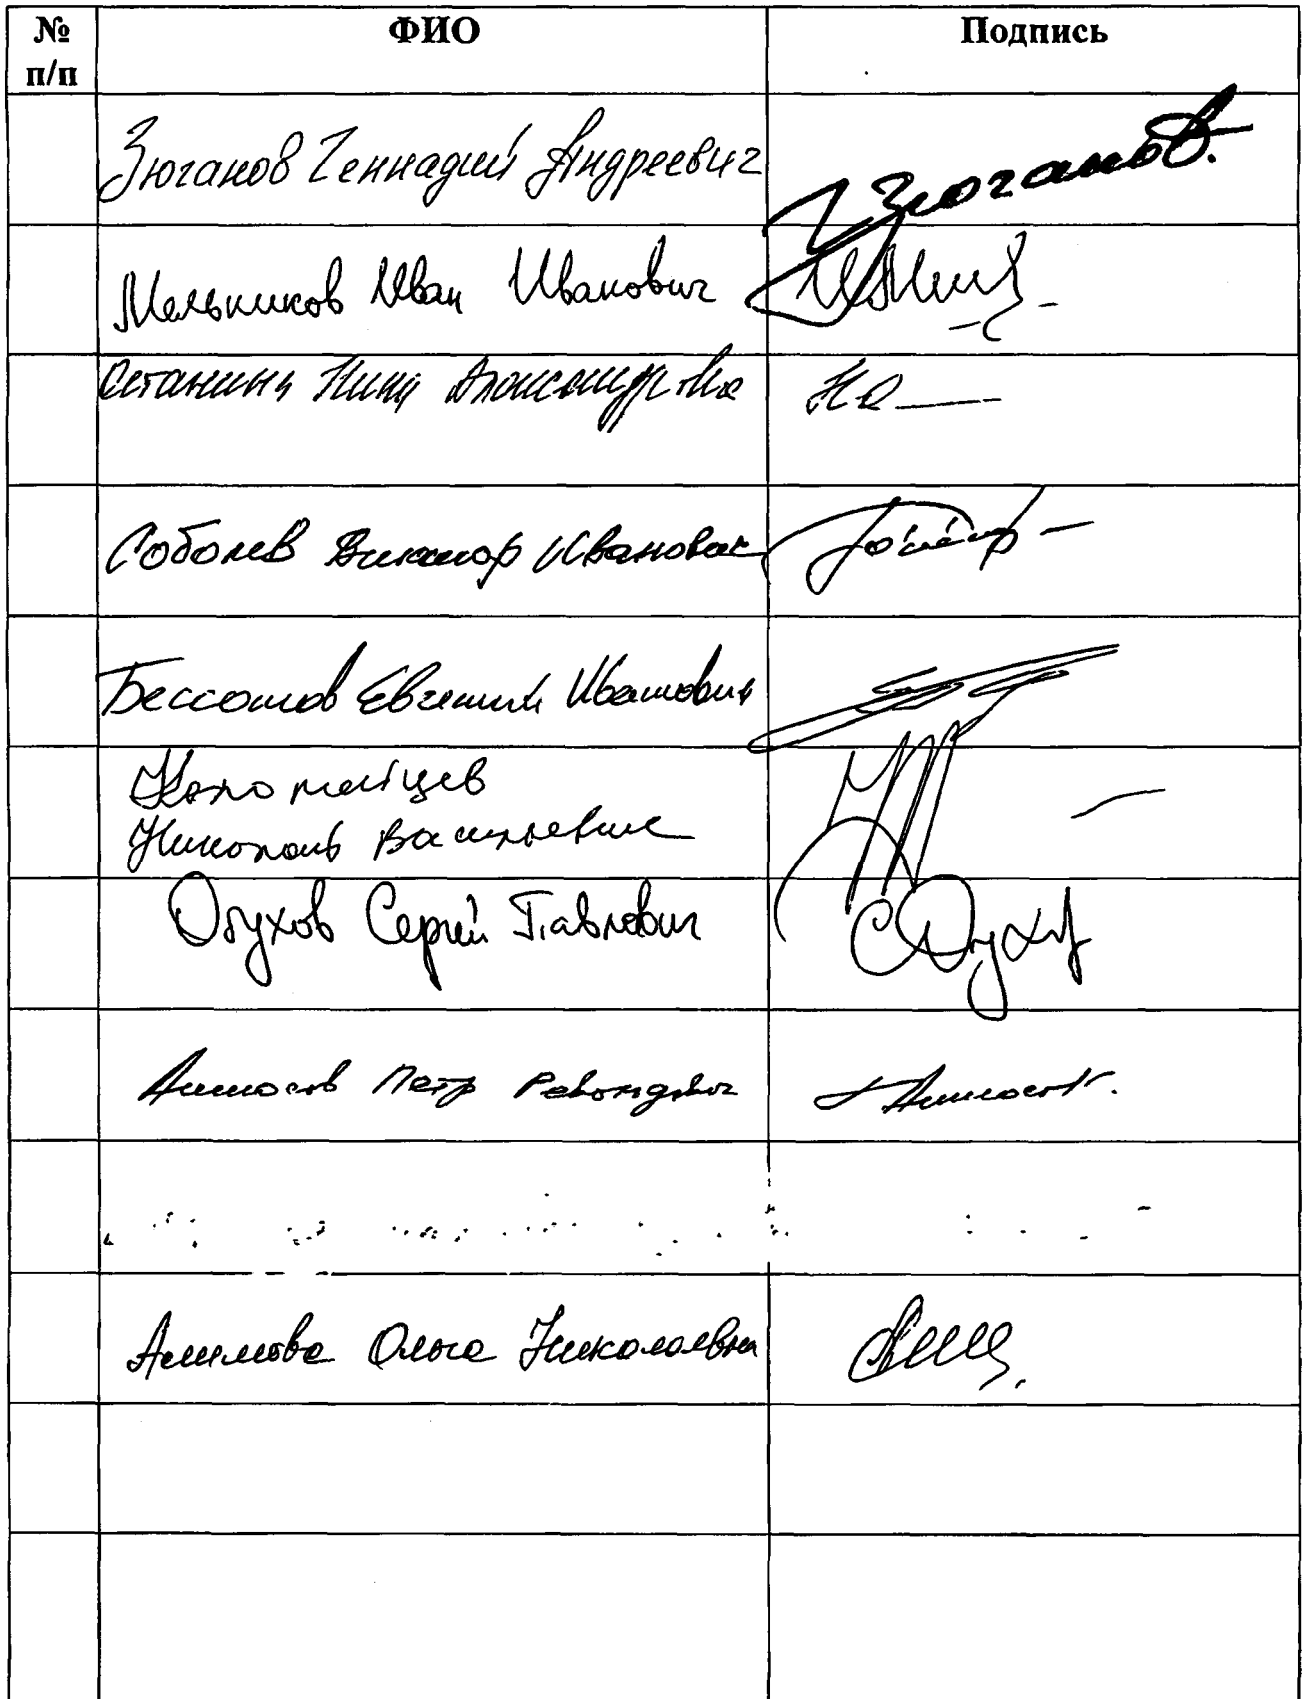 № п/п ФИО Подпись
Зюганов Геннадий Андреевич Г Зюганов.
Мельников Иван Иванович
Останина Нина Александровна
Соболев Виктор Иванович
Бессонов Евгений Иванович
Коломейцев
Николай Васильевич
Обухов Сергей Павлович С Обухов
Аммосов Петр Револдович Аммосов
Алимова Ольга Николаевна